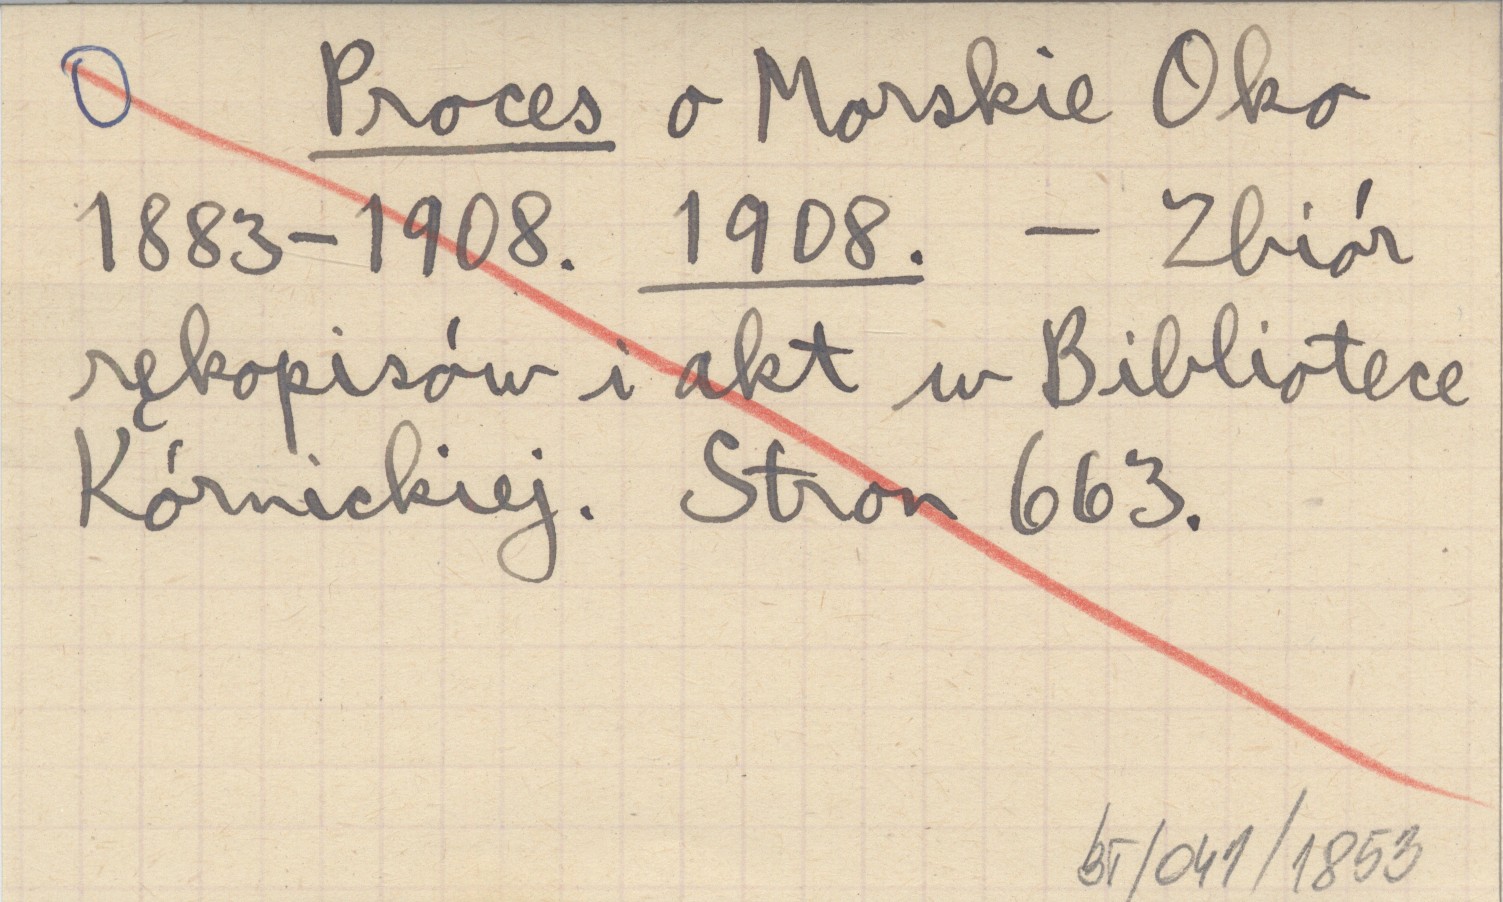 O Proces o Morskie Oko
1883-1908. 1908. - Zbiór
rękopisów i akt w Bibliotece
Kórnickiej. Stron 663.
BT/041/1853